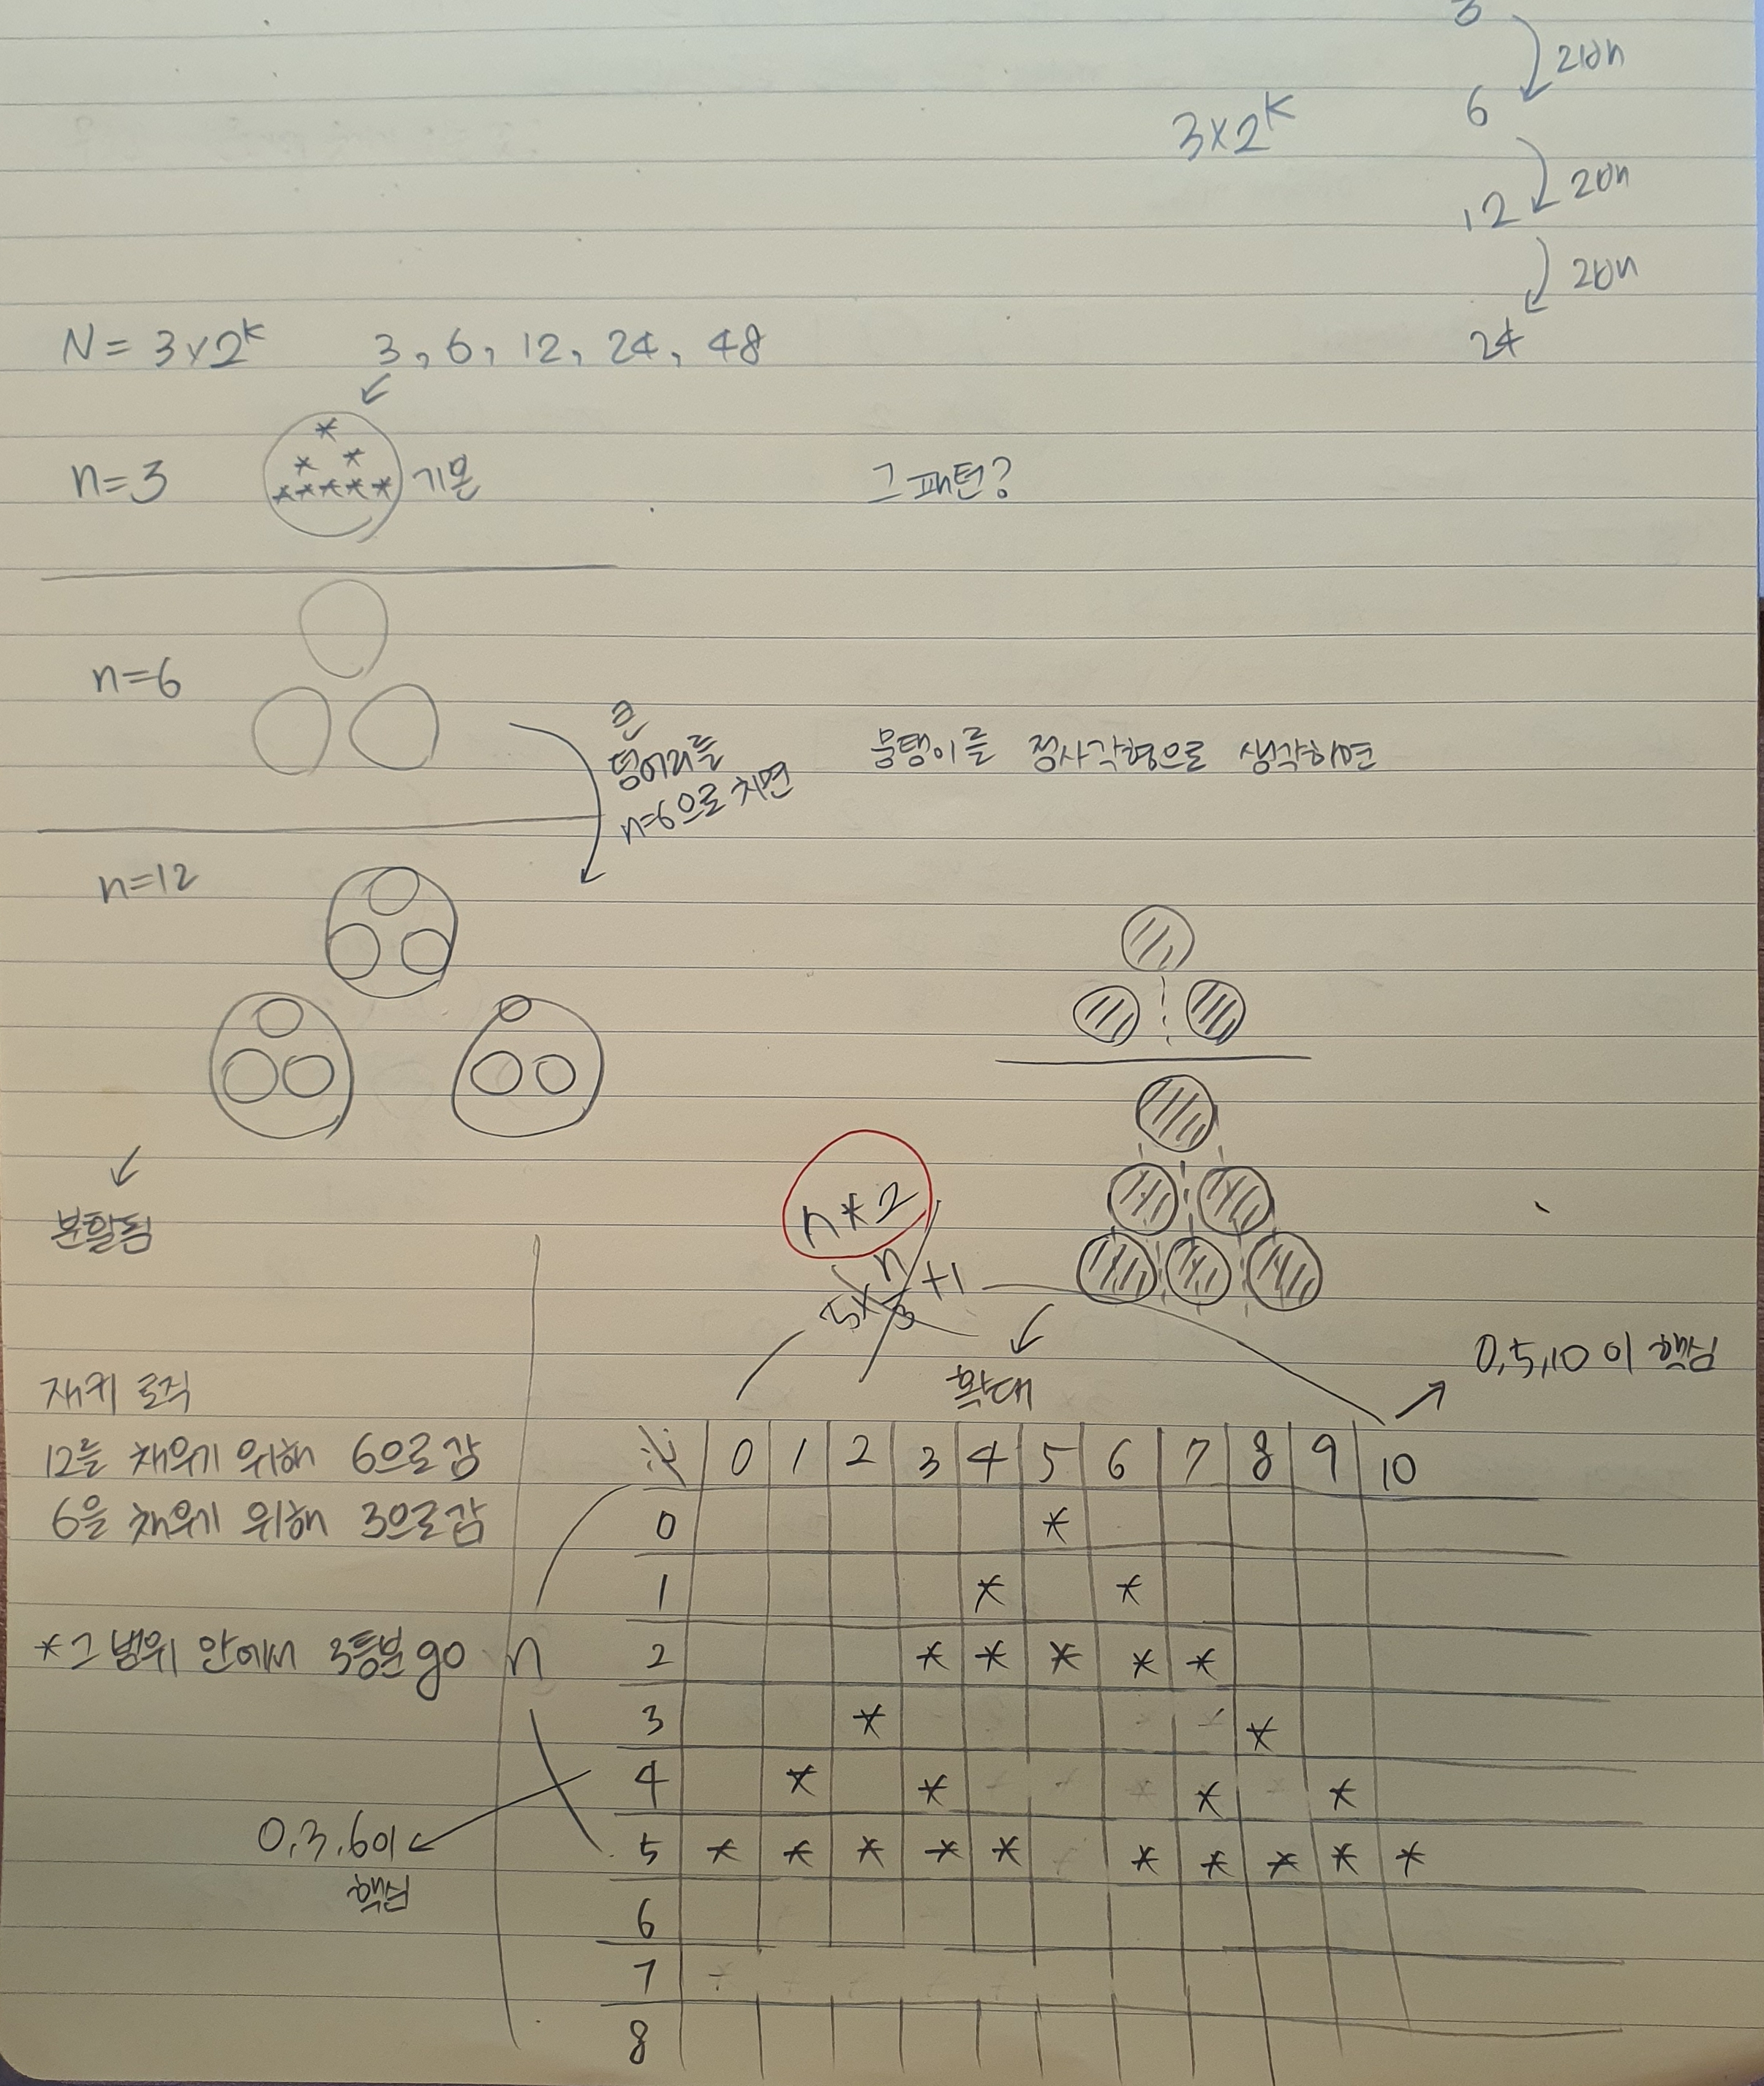 3
2배
6
3×2^K
2배
12
2배
24
N = 3×2^K 3, 6, 12, 24, 48
*
* *
*****
n=3 기본
그 패턴?
n=6
큰
덩어리를
n=6으로 치면
뭉탱이를 정사각형으로 생각하면
n=12
분할됨
n*2
5×n/3+1
확대
0,5,10이 핵심
재귀 로직
12를 채우기 위해 6으로 감
6을 채우기 위해 3으로 감
*그 범위 안에서 3등분 go
n
0,3,6이
핵심
0 1 2 3 4 5 6 7 8 9 10
0 *
1 * *
2 * * * * *
3 * *
4 * * * *
5 * * * * * * * * * *
6
7
8